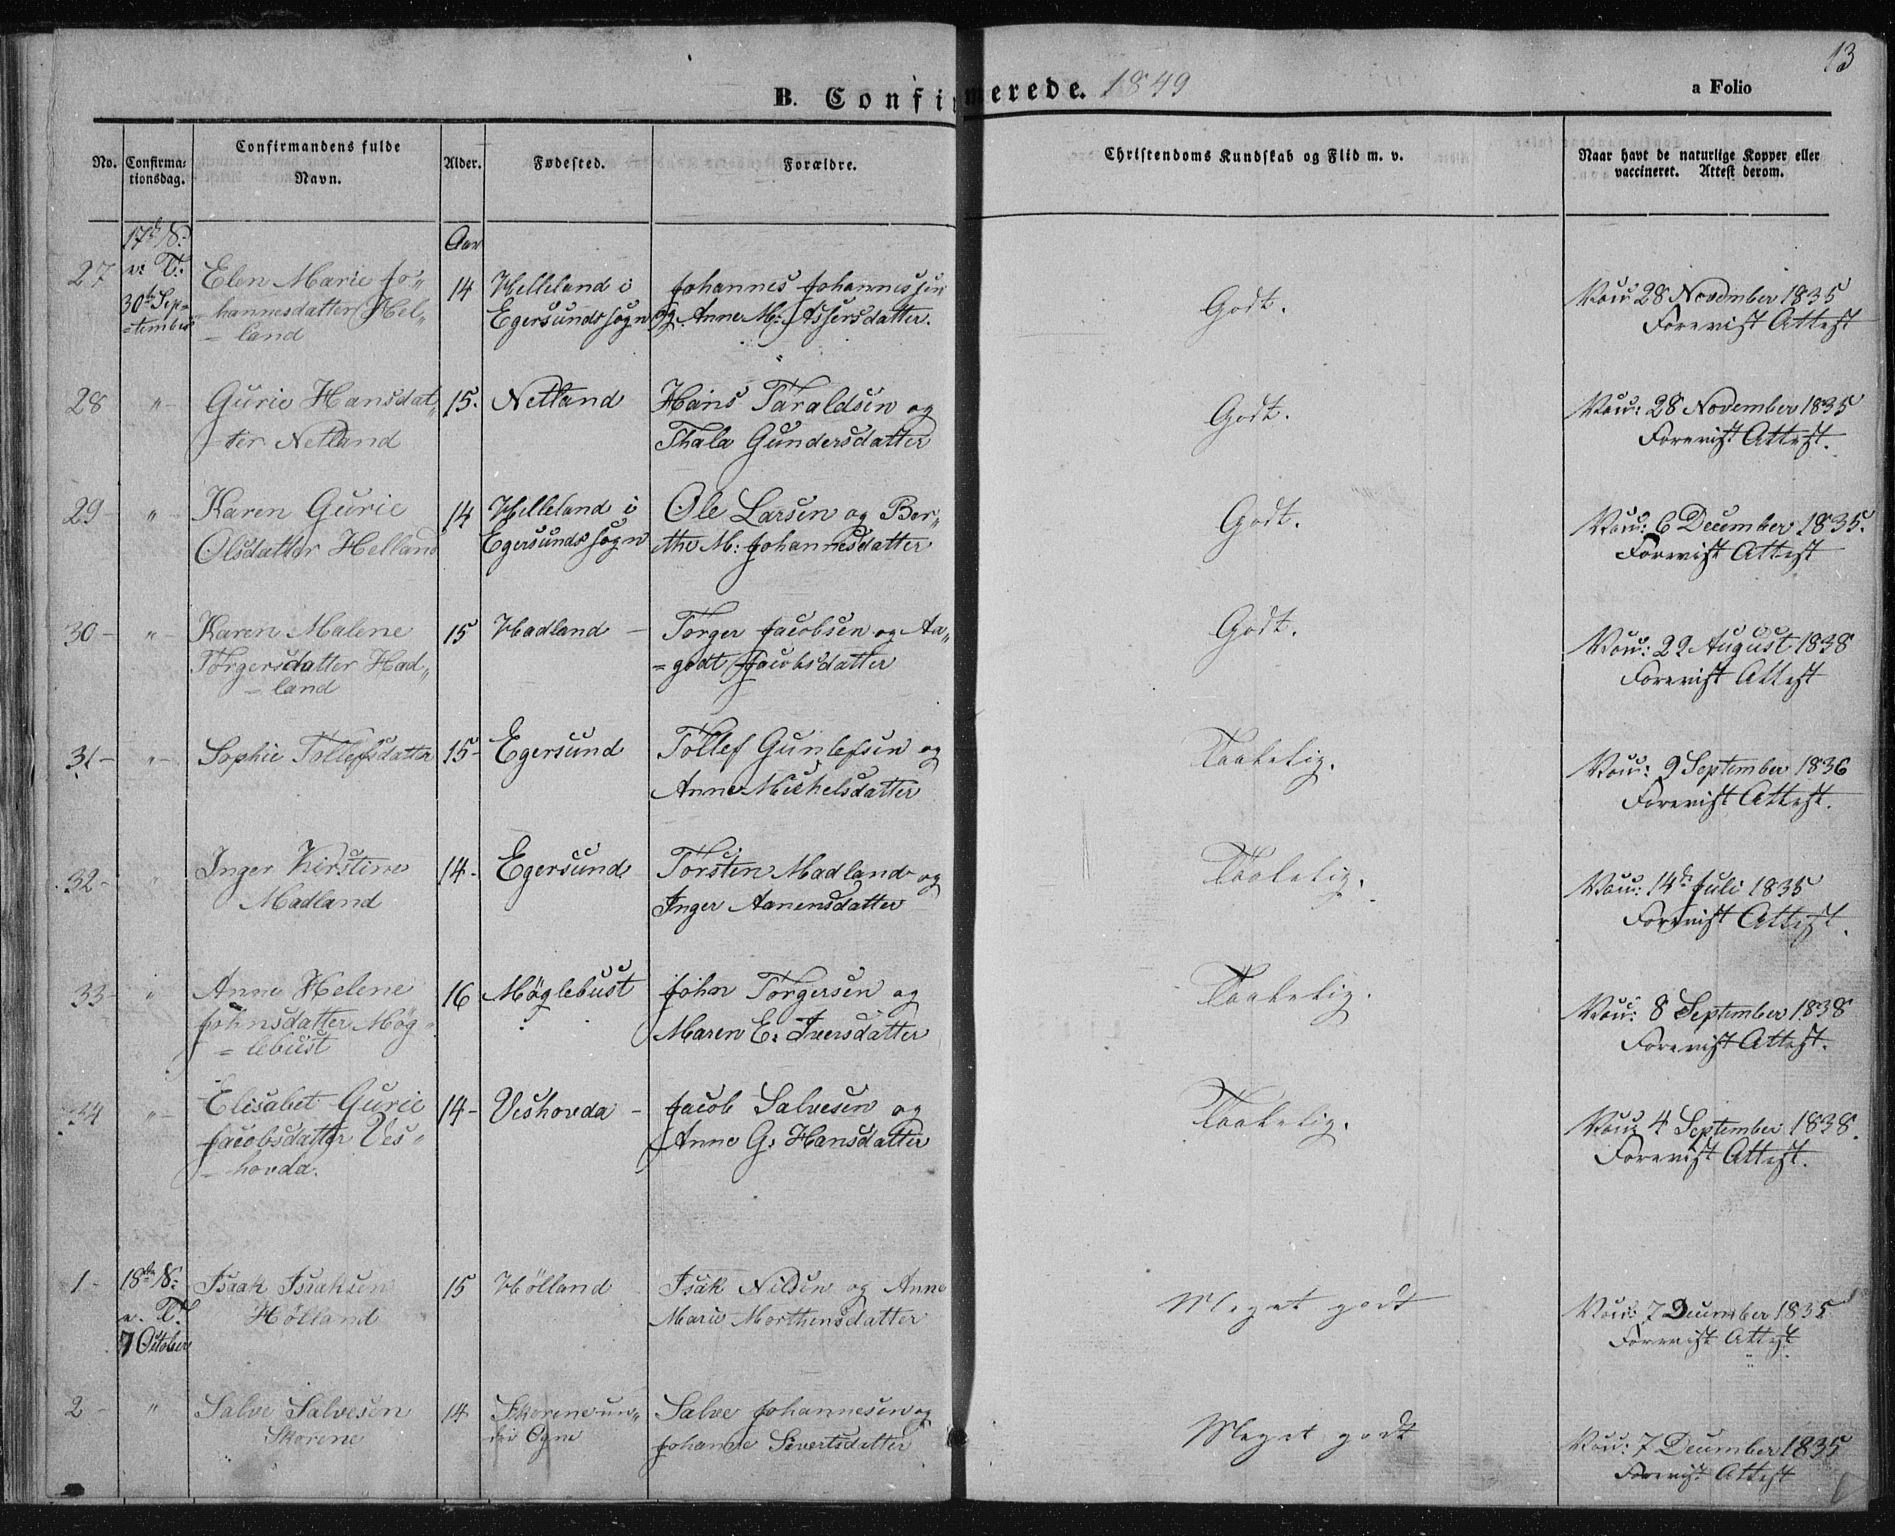 13
B. Confirmerede. 1849
a Folio
No.
Confirma-
tionsdag.
Confirmandens fulde
Navn.
Alder.
Fødested.
Forældre.
Christendoms Kundskab og Flid m. v.
Naar havt de naturlige Kopper eller
vaccineret. Attest derom.
17de S:
e: T:
30te Sep-
=tember
Aar
27
Elen Marie Jo-
=hannesdatter Hel-
=land
14
Helleland i
Egersunds Sogn
Johannes Johannessen
og Anne M: Assersdatter.
Godt.
Vacc: 28 November 1835
Forevist Attest
28 "
Gurie Hansdat-
ter Netland
15.
Netland
Hans Taraldsen og
Thala Gundersdatter
Godt.
Vacc: 28 November 1835
Forevist Attest.
29 "
Karen Gurie
Olsdatter Helland
14
Helleland i
Egersunds Sogn
Ole Larsen og Ber-
the M: Johannesdatter
Godt.
Vacc: 6 December 1835.
Forevist Attest
30 - "
Karen Malene
Torgersdatter Had-
=land
15
Hadland -
Torger Jacobsen og Aa-
=godt Jacobsdatter
Godt.
Vacc: 22 August 1838
Forevist Attest
31 - "
Sophie Tollefsdatter
15 -
Egersund
Tollef Gunlefsen og
Anne Michelsdatter
Taalelig.
Vacc: 9 September 1836
Forevist Attest.
32 - "
Inger Kirstine
Madland
14 -
Egersund
Torsten Madland og
Inger Aanensdatter
Taalelig.
Vacc: 14de Juli 1835
Forevist Attest.
33 "
Anne Helene
Johnsdatter Møg-
=lebust
16
Møglebust
John Torgersen og
Maren E: Iversdatter
Taalelig.
Vacc: 8 September 1838
Forevist Attest.
34 "
Elisabet Gurie
Jacobsdatter Ves-
=hovda.
14 -
Veshovda -
Jacob Salvesen og
Anne G: Hansdatter
Taalelig.
Vacc: 4 September 1838.
Forevist Attest.
1 -
18de S:
e. T.
7 October
Isaak Isaksen
Hølland
15
Hølland
Isak Nilsen og Anne
Marie Morthensdatter
Meget godt
Vacc: 7 December 1835
Forevist Attest
2 - "
Salve Salvesen
Skorene
14
Skorene un-
der Ogne
Salve Johannesen og
Johanne Sivertsdatter
Meget godt
Vacc: 7 December 1835
Forevist Attest